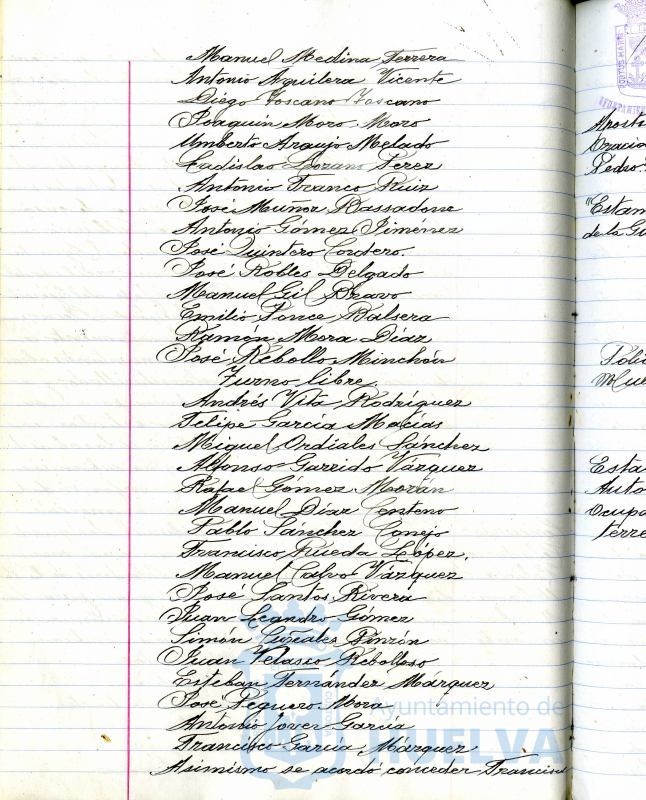 Manuel Medina Ferrera
Antonio Aguilera Vicente
Diego Toscano Toscano
Joaquín Moro Moro
Umberto Araujo Melado
Ladislao Lozano Perez
Antonio Franco Ruiz
José Muñoz Bassadone
Antonio Gómez Jimenez
José Quintero Cordero.
José Robles Delgado
Manuel Gil Bravo
Emilio Ponce Balsera
Ramón Mora Díaz
José Rebollo Minchón
Turno libre
Andrés Vita Rodríguez
Felipe García Macías
Miguel Ordiales Sánchez
Alfonso Garrido Vázquez
Rafael Gómez Morán
Manuel Díaz Centeno
Pablo Sánchez Conejo
Francisco Rueda López.
Manuel Calvo Vázquez
José Santos Rivera
Juan Leandro Gómez
Simón Pinzón
Juan Velasco Rebolloso
Esteban Fernández Márquez
José Peguero Mora
Antonio Jover García
Francisco García Márquez
Asimismo se acordó conceder Francisc
Ayuntamiento de
HUELVA
Pedro
"Estam
de la Gu
Esta
Auto
Ocupa
terre